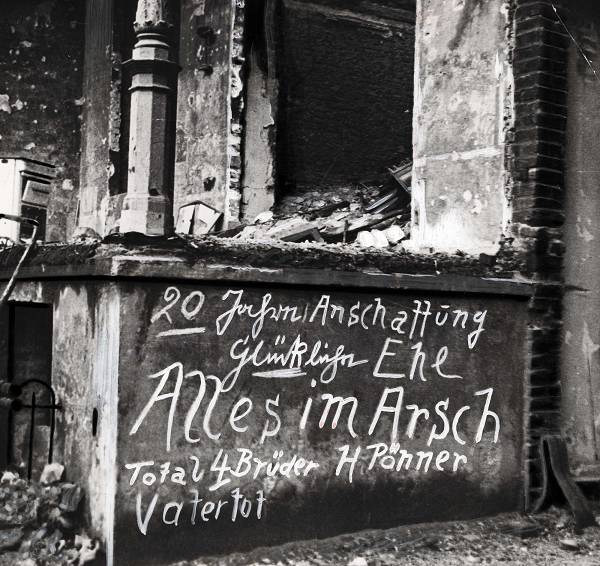 20 Jahren Anschaffung
Glücklicher Ehe
Alles im Arsch
Total 4 Brüder H Pönner
Vatertot